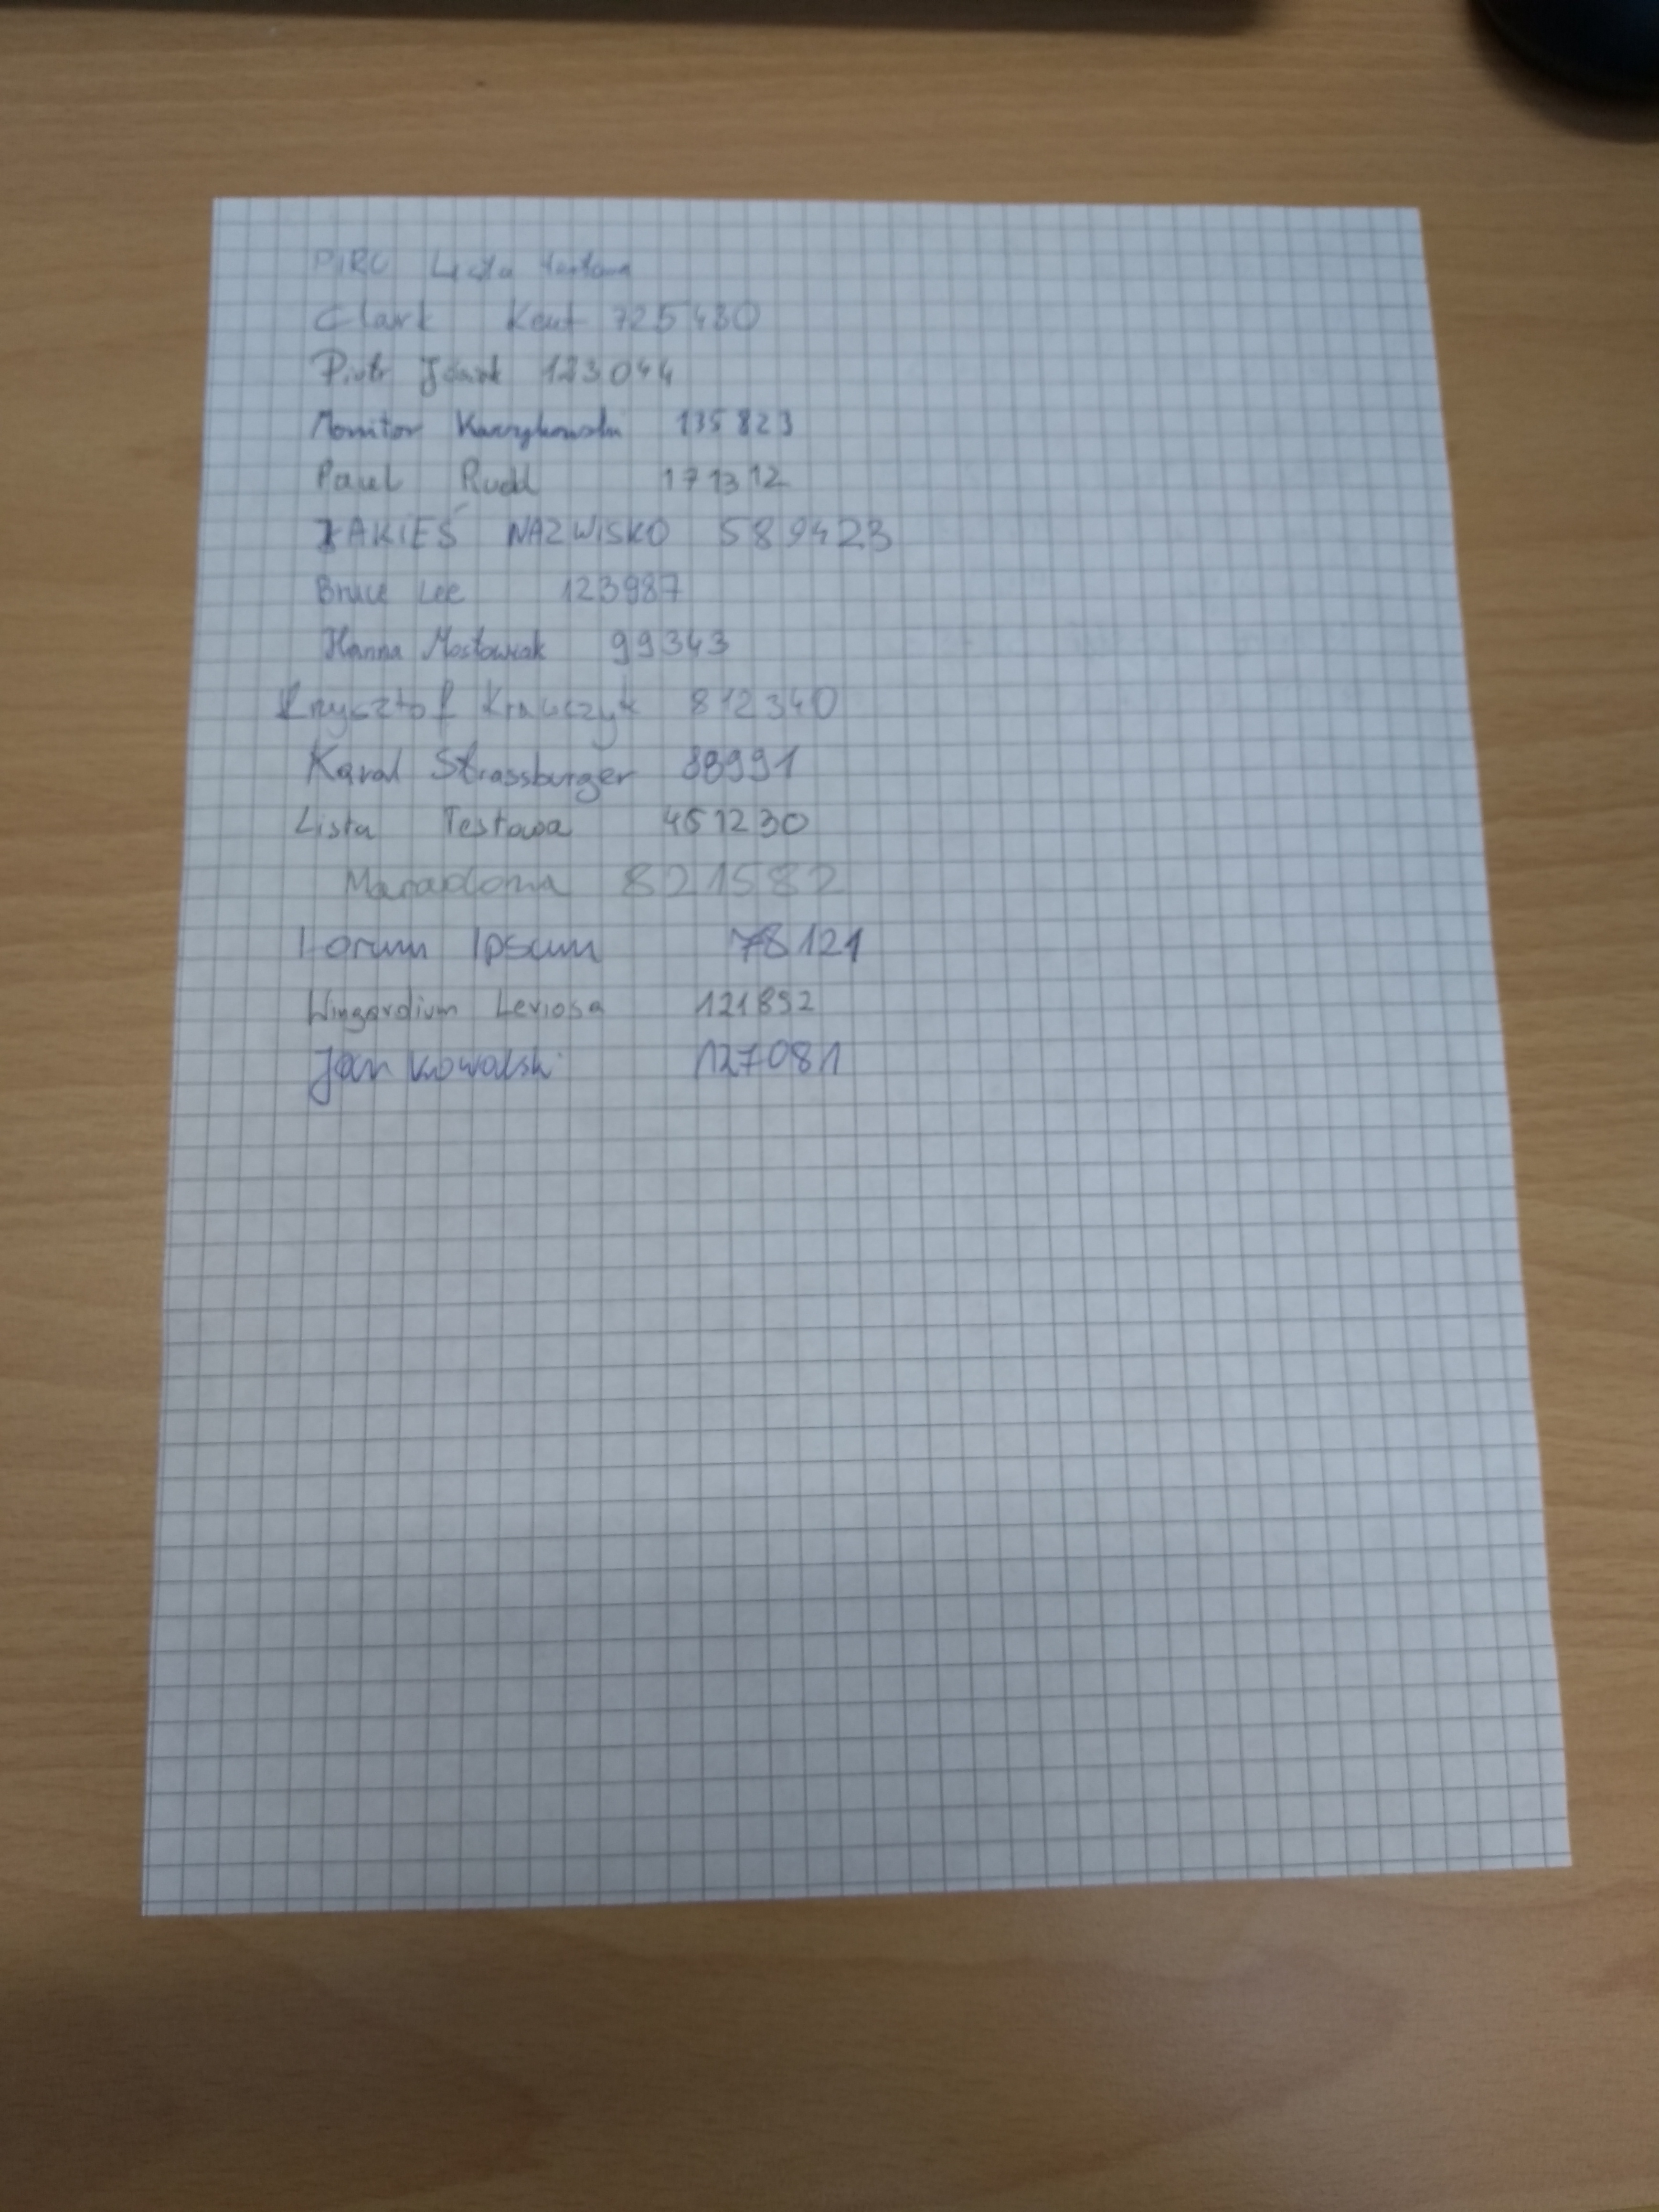 PIRC Lista testowa
Clark Kent 725430
Piotr 123044
Monitor 135823
Paul Rudd 171312
JAKIEŚ NAZWISKO 589423
Bruce Lee 123987
Hanna Mostowiak 99343
Krysztof Krawczyk 812340
Karol Strassburger 88991
Lista Testowa 451230
Maradona 821582
Lorum Ipsum 78121
Wingardium Leviosa 121892
Jan Kowalski 127081